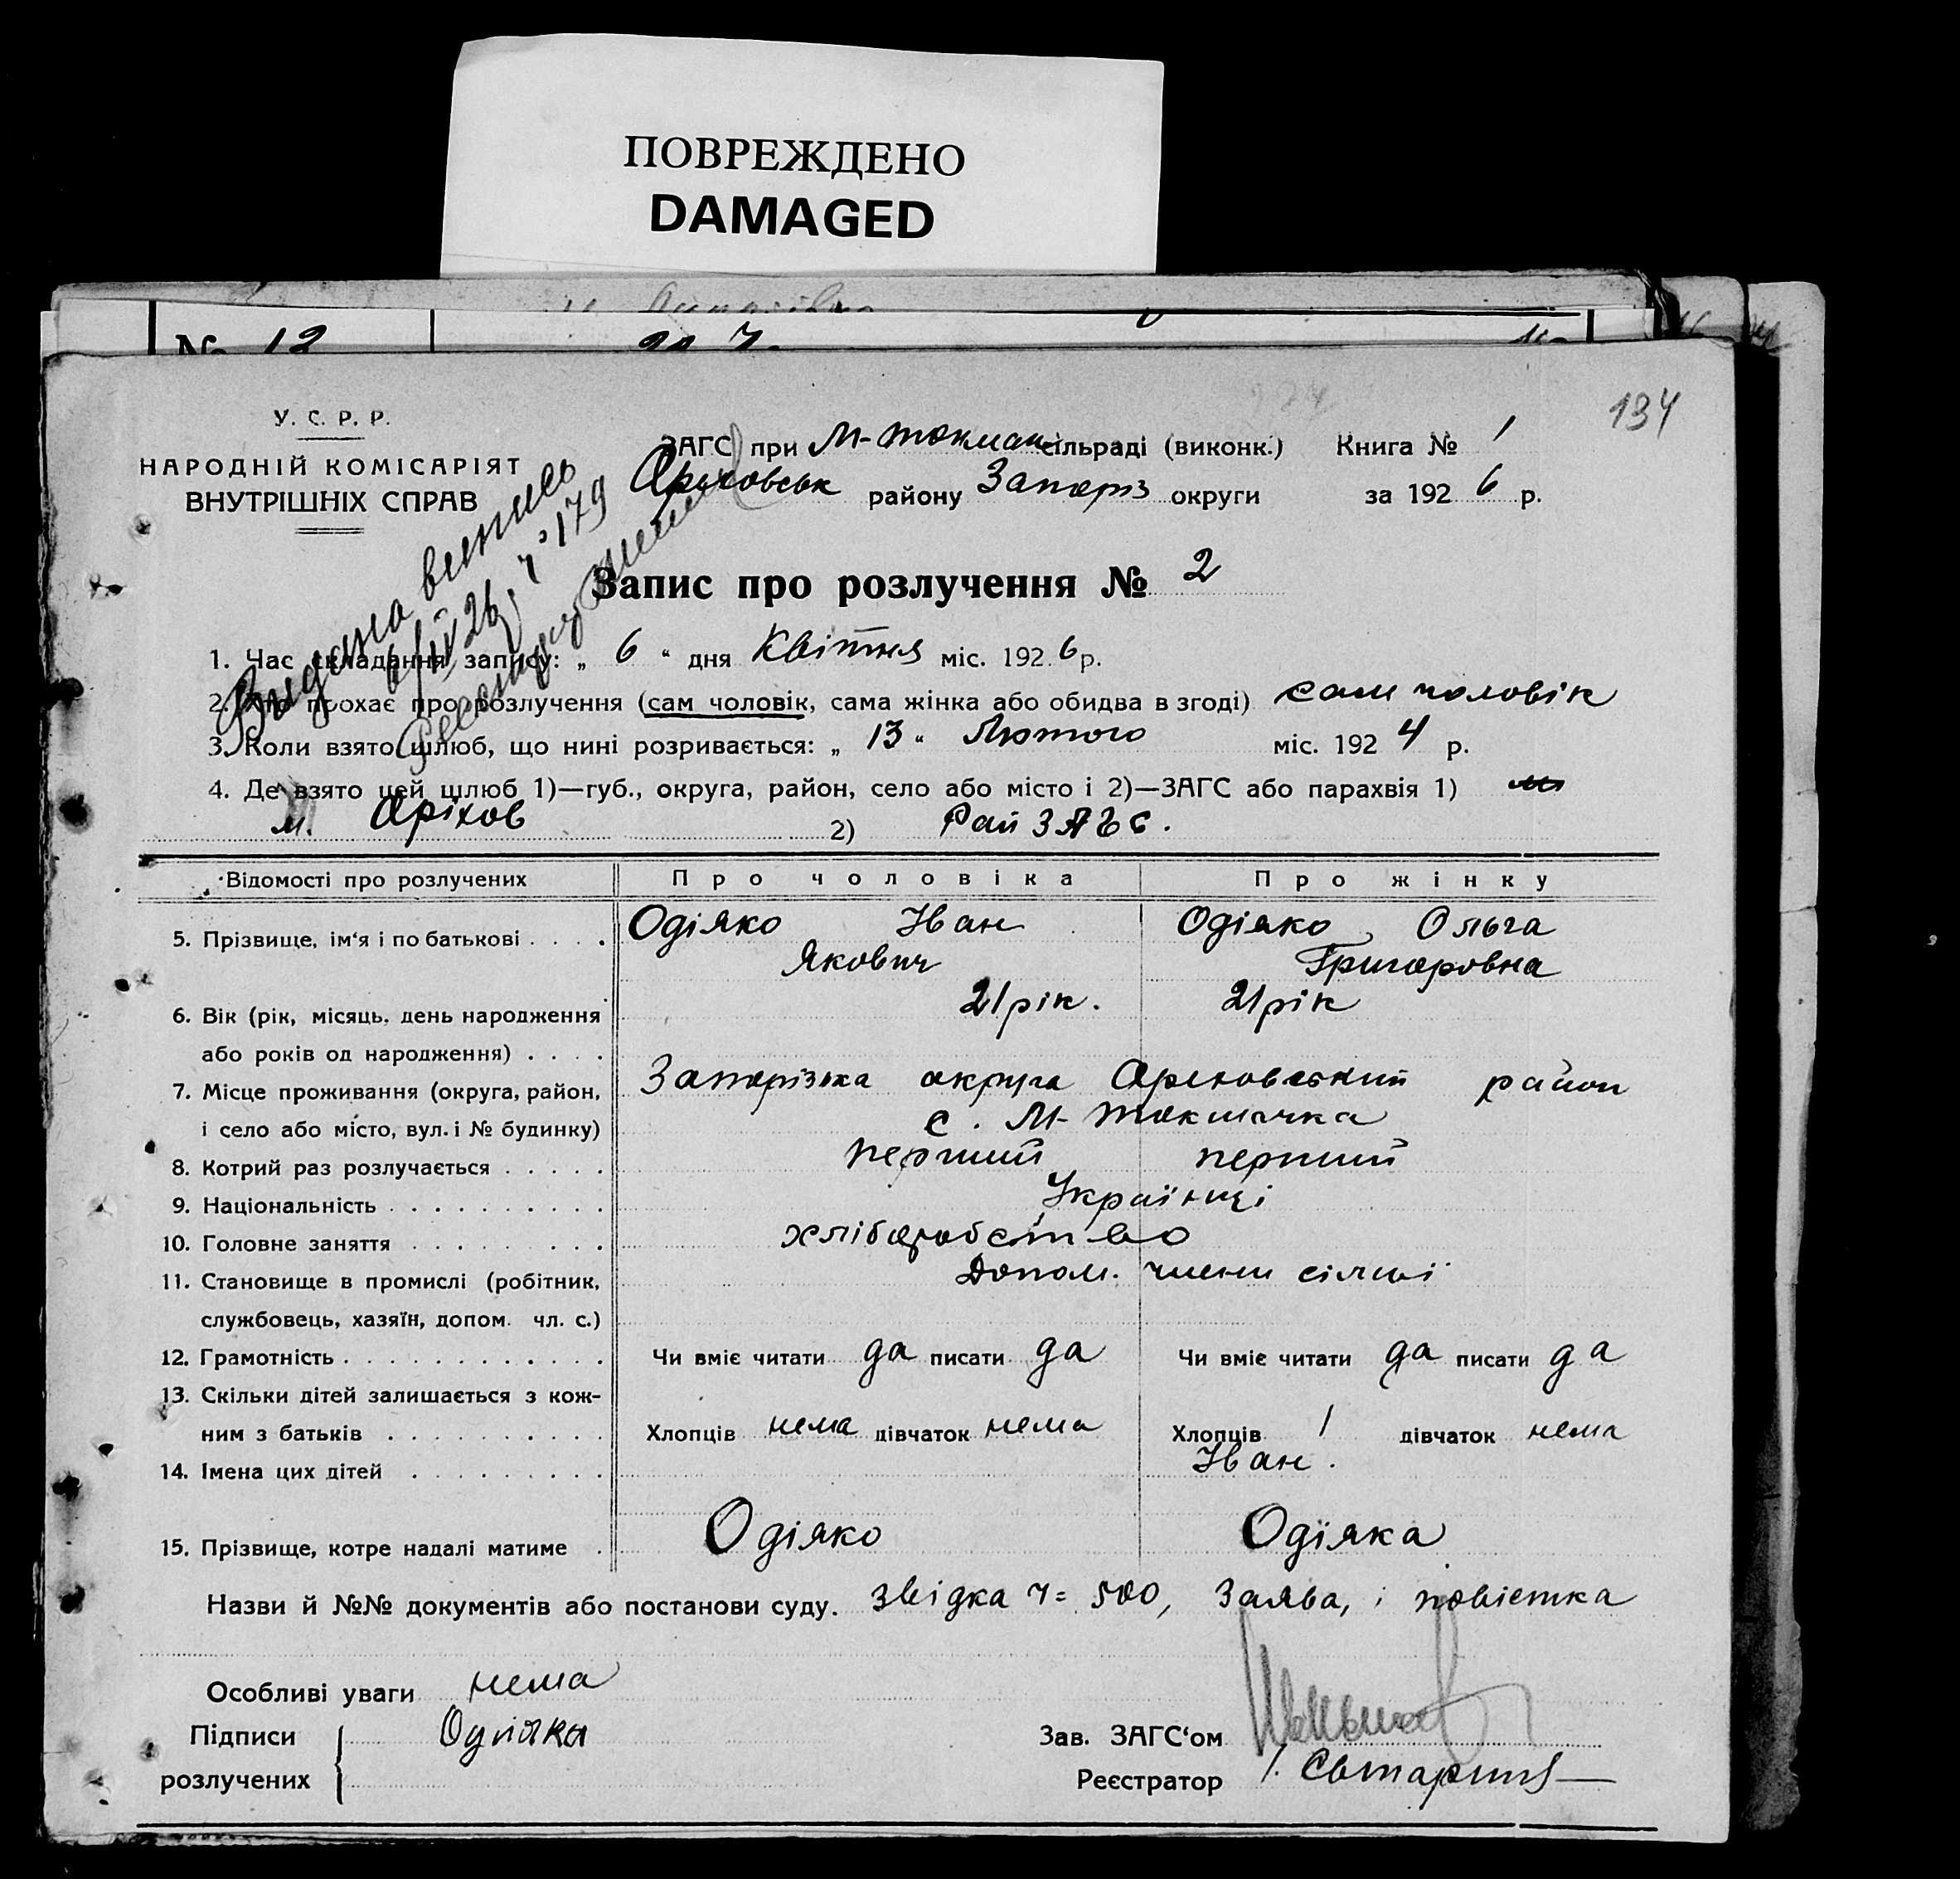 ПОВРЕЖДЕНО
DAMAGED
№ 12
134
У. С. Р. Р.
НАРОДНІЙ КОМІСАРІЯТ
ВНУТРІШНІХ СПРАВ
ЗАГС при М-Токмач сільраді (виконк.) Книга № 1
Оріховськ району Запоріз округи за 1926 р.
Видано витпись
6/IV 26 ч 179
Запис про розлучення № 2
1. Час складання запису: „ 6 “ дня Квітня міс. 1926 р.
2. Хто прохає про розлучення (сам чоловік, сама жінка або обидва в згоді) сам чоловік
3. Коли взято шлюб, що нині розривається: „ 13 “ Лютого міс. 1924 р.
4. Де взято цей шлюб 1)—губ., округа, район, село або місто і 2)—ЗАГС або парахвія 1)
м. Оріхов 2) Рай ЗАГС.
Відомості про розлучених Про чоловіка Про жінку
5. Прізвище, ім‘я і по батькові . . . . Одіяко Іван Одіяко Ольга
Якович Григоровна
6. Вік (рік, місяць, день народження 21 рік. 21 рік
або років од народження) . . . .
7. Місце проживання (округа, район, Запорізька округа Оріховський район
і село або місто, вул. і № будинку) с. М-Токмачка
8. Котрий раз розлучається . . . . . перший перший
9. Національність . . . . . . . . . . Українці
10. Головне заняття . . . . . . . . . хліборобство
11. Становище в промислі (робітник, Допом. члени сімьї
службовець, хазяїн, допом. чл. с.)
12. Грамотність . . . . . . . . . . . . Чи вміє читати да писати да Чи вміє читати да писати да
13. Скільки дітей залишається з кож-
ним з батьків . . . . . . . . . . Хлопців нема дівчаток нема Хлопців 1 дівчаток нема
14. Імена цих дітей . . . . . . . . . Іван.
15. Прізвище, котре надалі матиме . Одіяко Одіяка
Назви й №№ документів або постанови суду. Звідка ч= 500, Заява, і повістка
Особливі уваги нема
Підписи Одіяка Зав. ЗАГС‘ом
розлучених Реєстратор